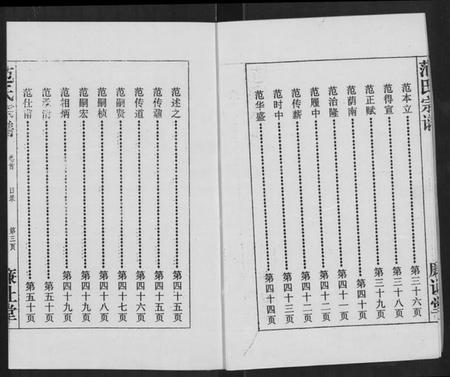 范氏宗谱
廉让堂
范本立 第三十六页
范得宣 第三十八页
范正赋 第三十九页
范荫南 第四十页
范治隆 第四十一页
范履中 第四十二页
范传薪 第四十二页
范时中 第四十三页
范华盛 第四十四页
范述之 第四十五页
范传蕴 第四十五页
范传道 第四十六页
范嗣贤 第四十七页
范嗣桢 第四十八页
范嗣宏 第四十九页
范祖炳 第四十九页
范 第五十页
范仕甫 第五十页
范氏宗谱
卷首
目录
第三页
廉让堂